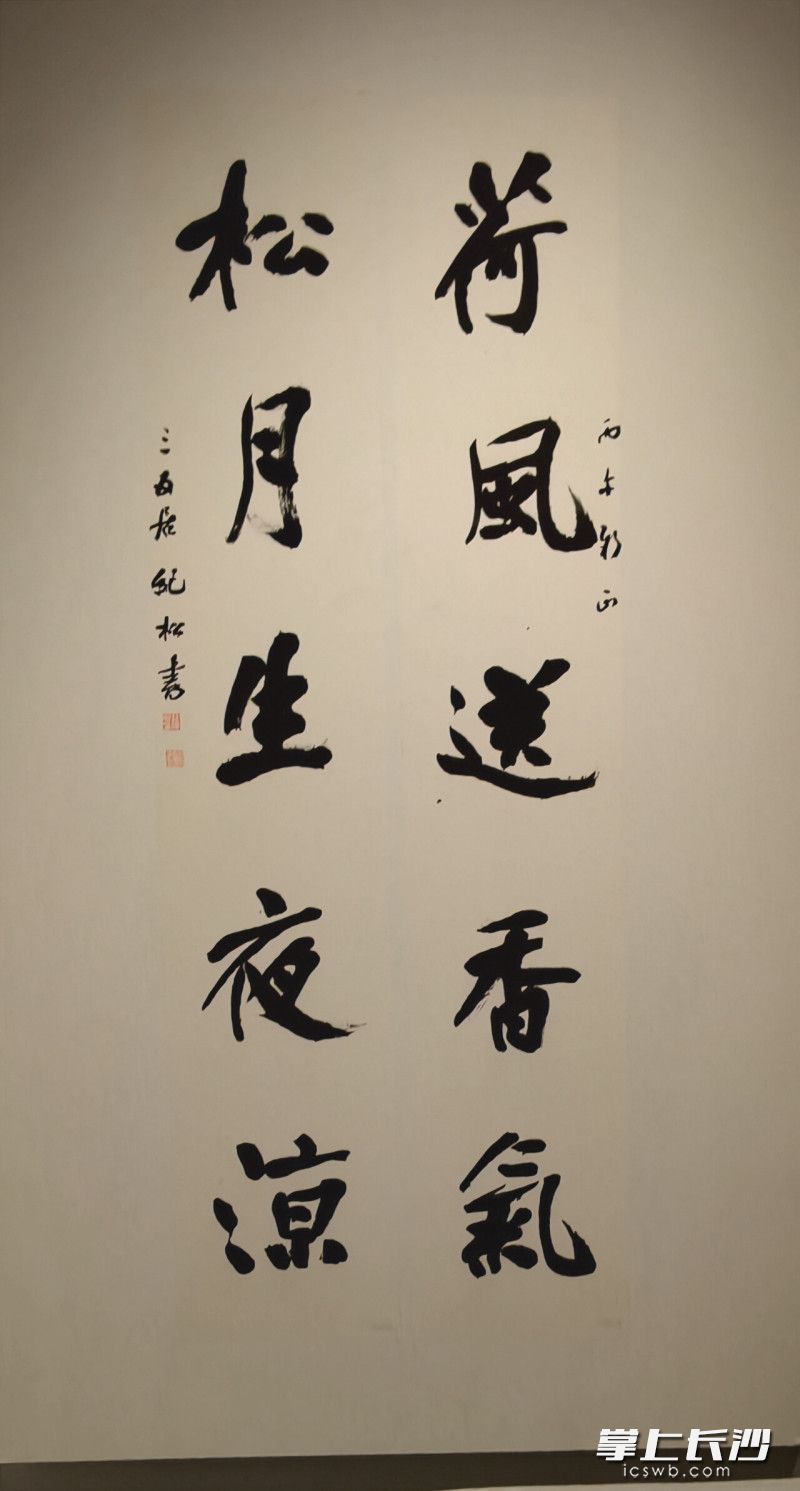 荷風送香氣
松月生夜涼
三
居紀松書
掌上长沙
icswb.com